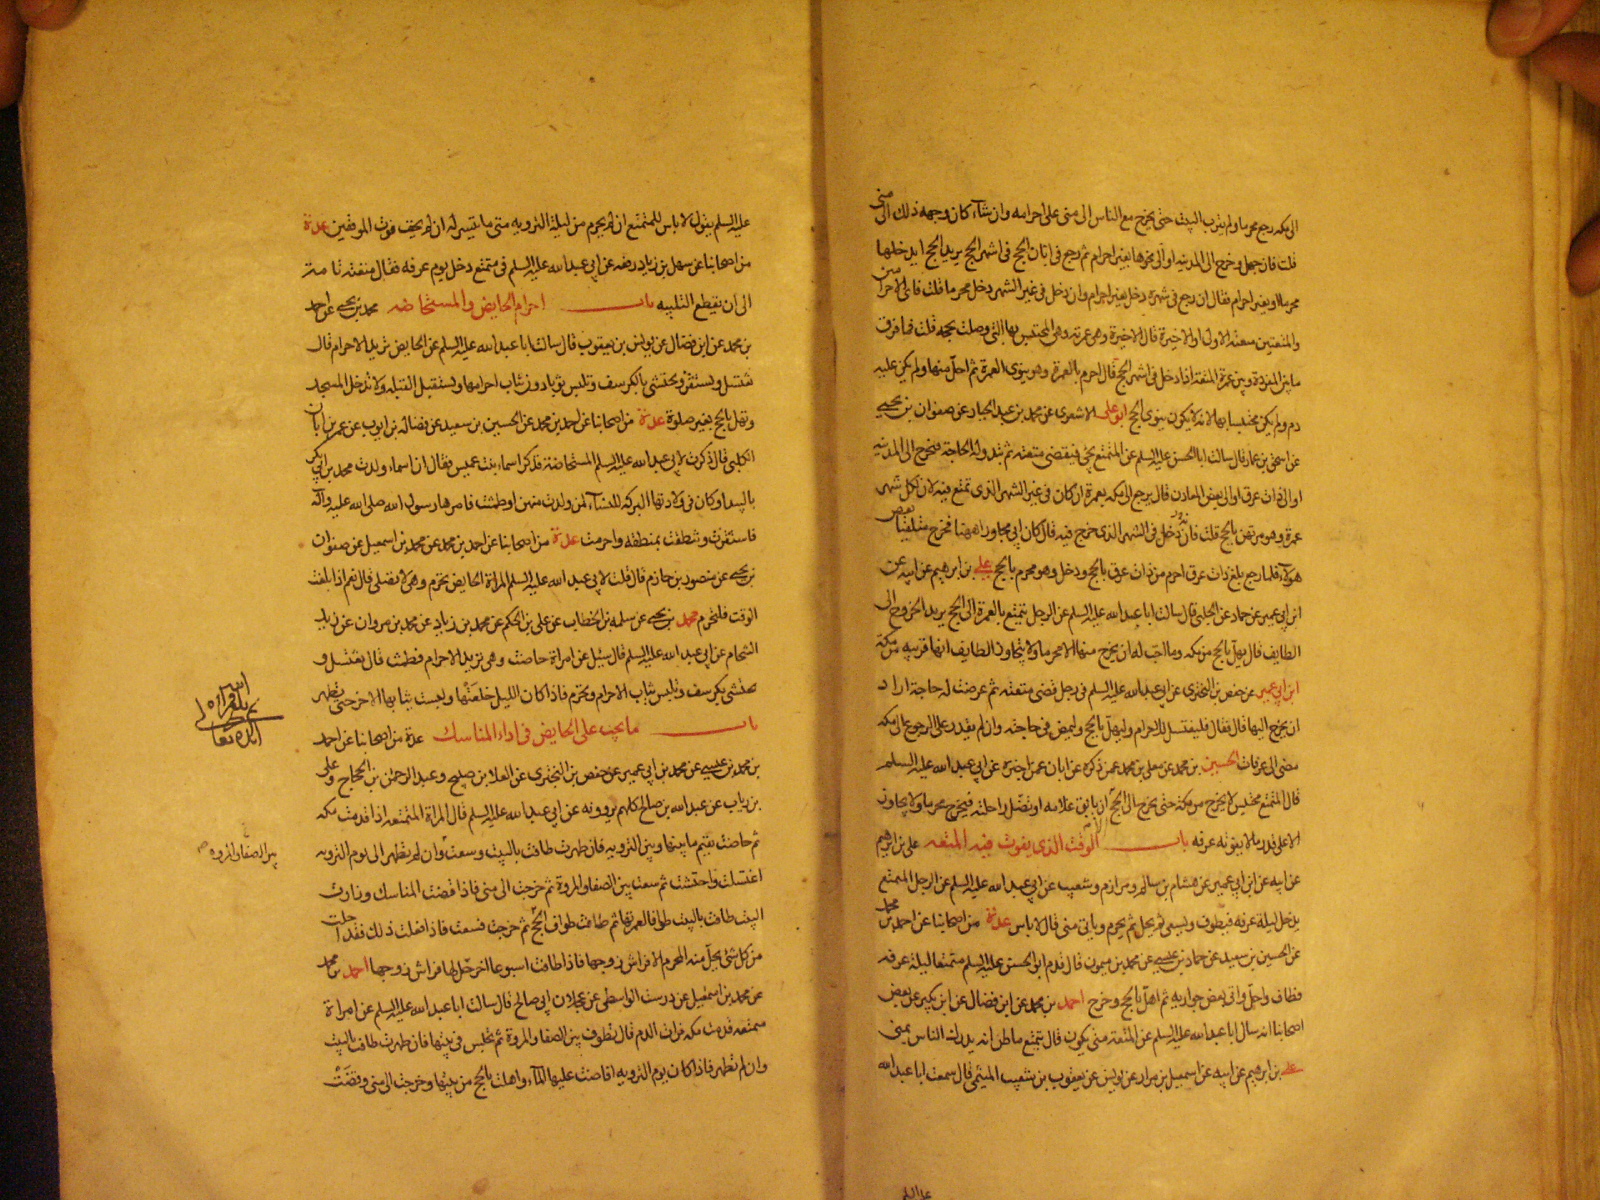 الى مكه رجع محرما ولم يقرب البيت حتى يخرج مع الناس الى منى على احرامه وان شآء كان وجهه ذلك الى منى
قلت فان جهل وخرج الى المدينه او الى نحوها بغير احرام ثم رجع فى ابان الحج فى اشهر الحج يريد الحج ايدخلها
محرما او بغير احرام فقال ان رجع فى شهره دخل بغير احرام وان دخل فى غير الشهر دخل محرما قلت فاى الاحرامين
والمتعتين متعته الاولى او الاخيرة قال الاخيرة وهى عمرته وهى المحتبس بها التى وصلت بحجه قلت فما فرق
ما بين المفردة وبين عمرة المتعة اذا دخل فى اشهر الحج قال احرم بالعمرة وهو ينوى العمرة ثم احل منها ولم يكن عليه
دم ولم يكن محتبسا بها لانه لا يكون ينوى الحج ابو على الاشعرى عن محمد بن عبد الجبار عن صفوان بن يحيى
عن اسحق بن عمار قال سالت ابا الحسن عليه السلم عن المتمتع يجئ فيقضى متعته ثم تبدو له الحاجة فيخرج الى المدينه
او الى ذات عرق او الى بعض المعادن قال يرجع الى مكه بعمرة ان كان فى غير الشهر الذى تمتع فيه لان لكل شهر
عمرة وهو مرتهن بالحج قلت فان دخل فى الشهر الذى خرج فيه قال كان ابى مجاورا ههنا فخرج متلقيا بعض
هؤلآء فلما رجع بلغ ذات عرق احرم من ذات عرق بالحج ودخل وهو محرم بالحج على بن ابرهيم عن ابيه عن
ابن ابى عمير عن حماد عن الحلبى قال سالت ابا عبد الله عليه السلم عن الرجل يتمتع بالعمرة الى الحج يريد الخروج الى
الطايف قال يهل بالحج من مكه وما احب له ان يخرج منها الا محرما ولا يتجاوز الطايف انها قريبه من مكة
ابن ابى عمير عن حفص بن البخترى عن ابى عبد الله عليه السلم فى رجل قضى متعته ثم عرضت له حاجة اراد
ان يخرج اليها قال فقال فليغتسل للاحرام وليهل بالحج وليمض فى حاجته وان لم يقدر على الرجوع الى مكه
مضى الى عرفات الحسين بن محمد عن معلى بن محمد عمن ذكره عن ابان عمن اخبره عن ابى عبد الله عليه السلم
قال المتمتع محتبس لا يخرج من مكة حتى يخرج الى الحج الا ان يابق غلامه او تضل راحلته فيخرج محرما ولا يجاوز
الا على قدر ما لا يفوته عرفه باب الوقت الذى يفوت فيه المتعه على بن ابرهيم
عن ابيه عن ابن ابى عمير عن هشام بن سالم ومرازم وشعيب عن ابى عبد الله عليه السلم عن الرجل المتمتع
يدخل ليلة عرفه فيطوف ويسعى ثم يحل ثم يحرم وياتى منى قال لا باس عدة من اصحابنا عن احمد بن محمد
عن الحسين بن سعيد عن حماد بن عيسى عن محمد بن ميمون قال قدم ابو الحسن عليه السلم متمتعا ليلة عرفه
فطاف واحل واتى بعض جواريه ثم اهل بالحج وخرج احمد بن محمد عن ابن فضال عن ابن بكير عن بعض
اصحابنا انه سال ابا عبد الله عليه السلم عن المتعه متى يكون قال يتمتع ما ظن انه يدرك الناس بمنى
على بن ابرهيم عن ابيه عن اسمعيل بن مرار عن يونس عن يعقوب بن شعيب الميثمى قال سمعت ابا عبد الله
عليه السلم
عليه السلم يقول لا باس للمتمتع ان لم يحرم من ليلة الترويه متى ما تيسر له ان لم يخف فوت الموقفين عدة
من اصحابنا عن سهل بن زياد رفعه عن ابى عبد الله عليه السلم فى متمتع دخل يوم عرفه فقال متعته تامة
الى ان يقطع التلبيه باب احرام الحايض والمستحاضه محمد بن يحيى عن احمد
بن محمد عن ابن فضال عن يونس بن يعقوب قال سالت ابا عبد الله عليه السلم عن الحايض تريد الاحرام قال
تغتسل وتستثفر وتحتشى بالكرسف وتلبس ثوبا دون ثياب احرامها وتستقبل القبله ولا تدخل المسجد
وتهل بالحج بغير صلوة عدة من اصحابنا عن احمد بن محمد عن الحسين بن سعيد عن فضالة بن ايوب عن عمر بن ابان
الكلبى قال ذكرت لابى عبد الله عليه السلم المستحاضة فذكر اسماء بنت عميس فقال ان اسماء ولدت محمد بن ابى بكر
بالبيداء وكان فى ولادتها البركه للنسآء لمن ولدت منهن او طمثت فامرها رسول الله صلى الله عليه وآله
فاستثفرت وتنطقت بمنطقه واحرمت عدة من اصحابنا عن احمد بن محمد عن محمد بن اسمعيل عن صفوان
بن يحيى عن منصور بن حازم قال قلت لابى عبد الله عليه السلم المراة الحايض تحرم وهى لا تصلى قال نعم اذا بلغت
الوقت فلتحرم محمد بن يحيى عن سلمه بن الخطاب عن على بن الحكم عن محمد بن زياد عن محمد بن مروان عن زيد
الشحام عن ابى عبد الله عليه السلم قال سئل عن امراة حاضت وهى تريد الاحرام فطمث قال تغتسل و
تحتشى بكرسف وتلبس ثياب الاحرام وتحرم فاذا كان الليل خلعتها ولبست ثيابها الاخر حتى تطهر
باب ما يجب على الحايض فى اداء المناسك عدة من اصحابنا عن احمد
بن محمد بن عيسى عن محمد بن ابى عمير عن حفص بن البخترى عن العلا بن صبيح وعبد الرحمن بن الحجاج وعلى
بن رياب عن عبد الله بن صالح كلهم يروونه عن ابى عبد الله عليه السلم قال المراة المتمتعه اذا قدمت مكه
ثم حاضت تقيم ما بينها وبين الترويه فان طهرت طافت بالبيت وسعت وان لم تطهر الى يوم الترويه
اغتسلت واحتشت ثم سعت بين الصفا والمروة ثم خرجت الى منى فاذا قضت المناسك وزارت
البيت طافت بالبيت طوافا لعمرتها ثم طافت طواف الحج ثم خرجت فسعت فاذا فعلت ذلك فقد احلت
من كل شئ يحل منه المحرم الا فراش زوجها فاذا طافت اسبوعا اخر حل لها فراش زوجها احمد بن محمد
عن محمد بن اسمعيل عن درست الواسطى عن عجلان ابى صالح قال سالت ابا عبد الله عليه السلم عن امراة
متمتعه قدمت مكه فرات الدم قال تطوف بين الصفا والمروة ثم تجلس فى بيتها فان طهرت طافت بالبيت
وان لم تطهر فاذا كان يوم الترويه افاضت عليها المآء واهلت بالحج من بيتها وخرجت الى منى وقضت
ثم بلغ قراءة
ايده الله تعالى
بين الصفا والمروة